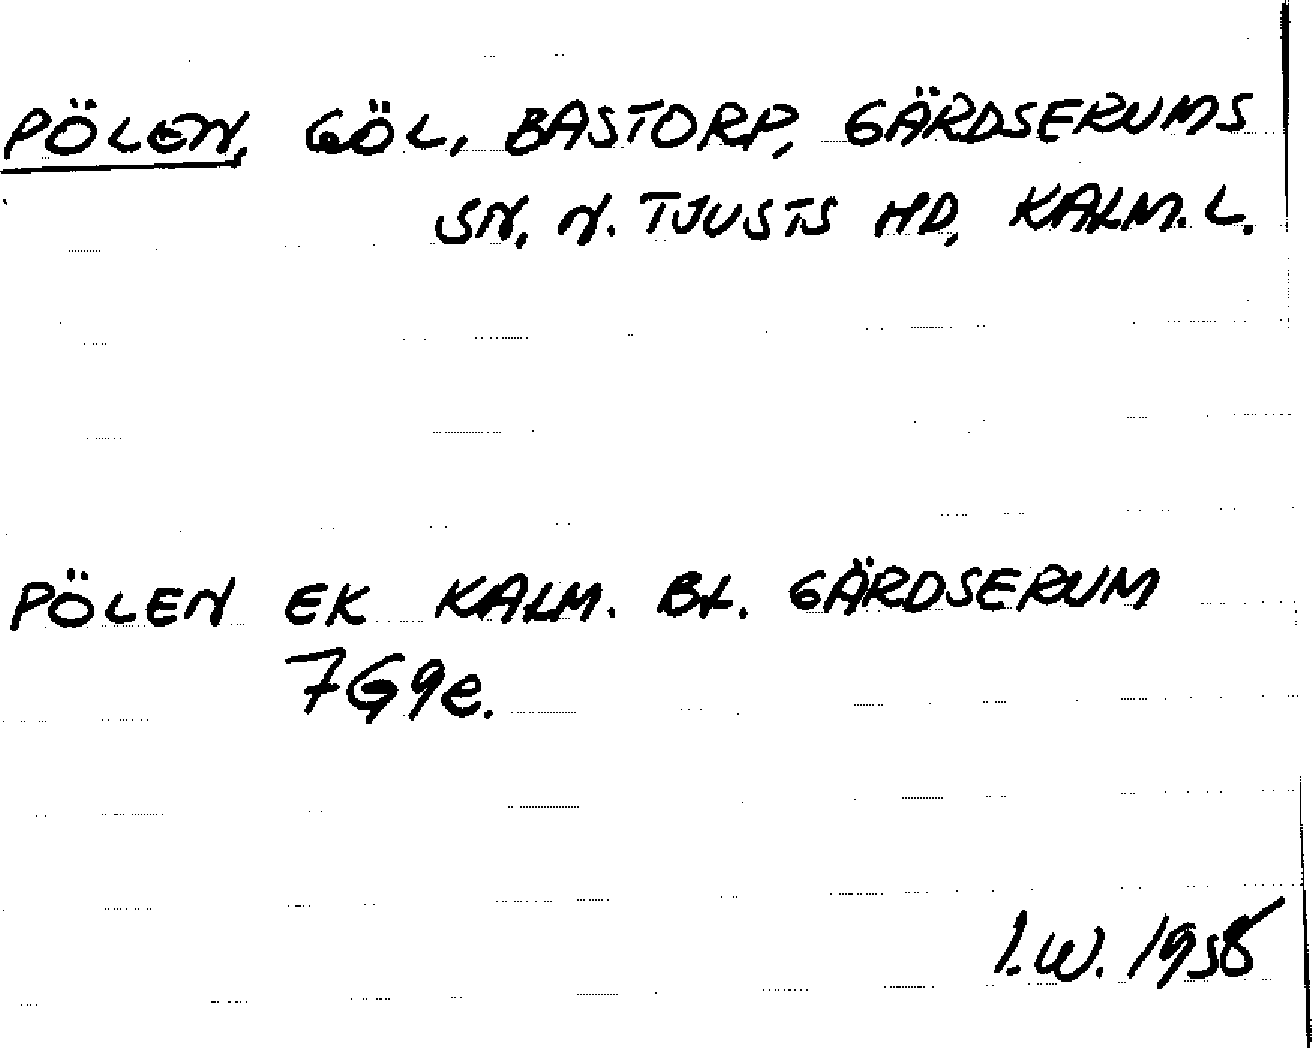 PÖLEN, GÖL, BASTORP, GÄRDSERUMS
SN, N. TJUSTS HD, KALM. L.
PÖLEN EK KALM. BL. GÄRDSERUM
7G9e.
I.W. 1958